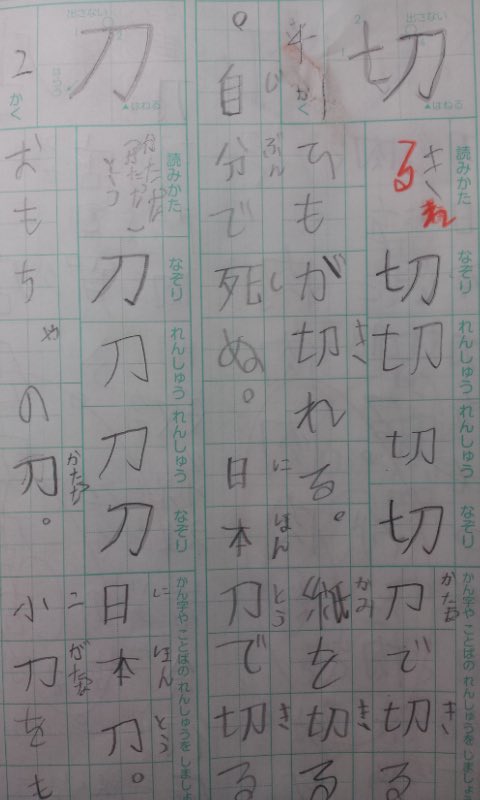 出さない
切
はねる
読みかた
なぞり
れんしゅう
れんしゅう
なぞり
かん字や ことばの れんしゅうを しましょ
切
切
切
切
かたな き
刀で切る
かく
き かみ き
ひもが切れる。紙を切る
じ ぶん し に ほん とう き
。自分で死ぬ。日本刀で切る
出さない
刀
はねる
2かく
読みかた
なぞり
れんしゅう
れんしゅう
なぞり
かん字や ことばの れんしゅうを しましょ
刀
刀
刀
刀
に ほん とう
日本刀。
かたな こ がたな
おもちゃの刀。小刀をも